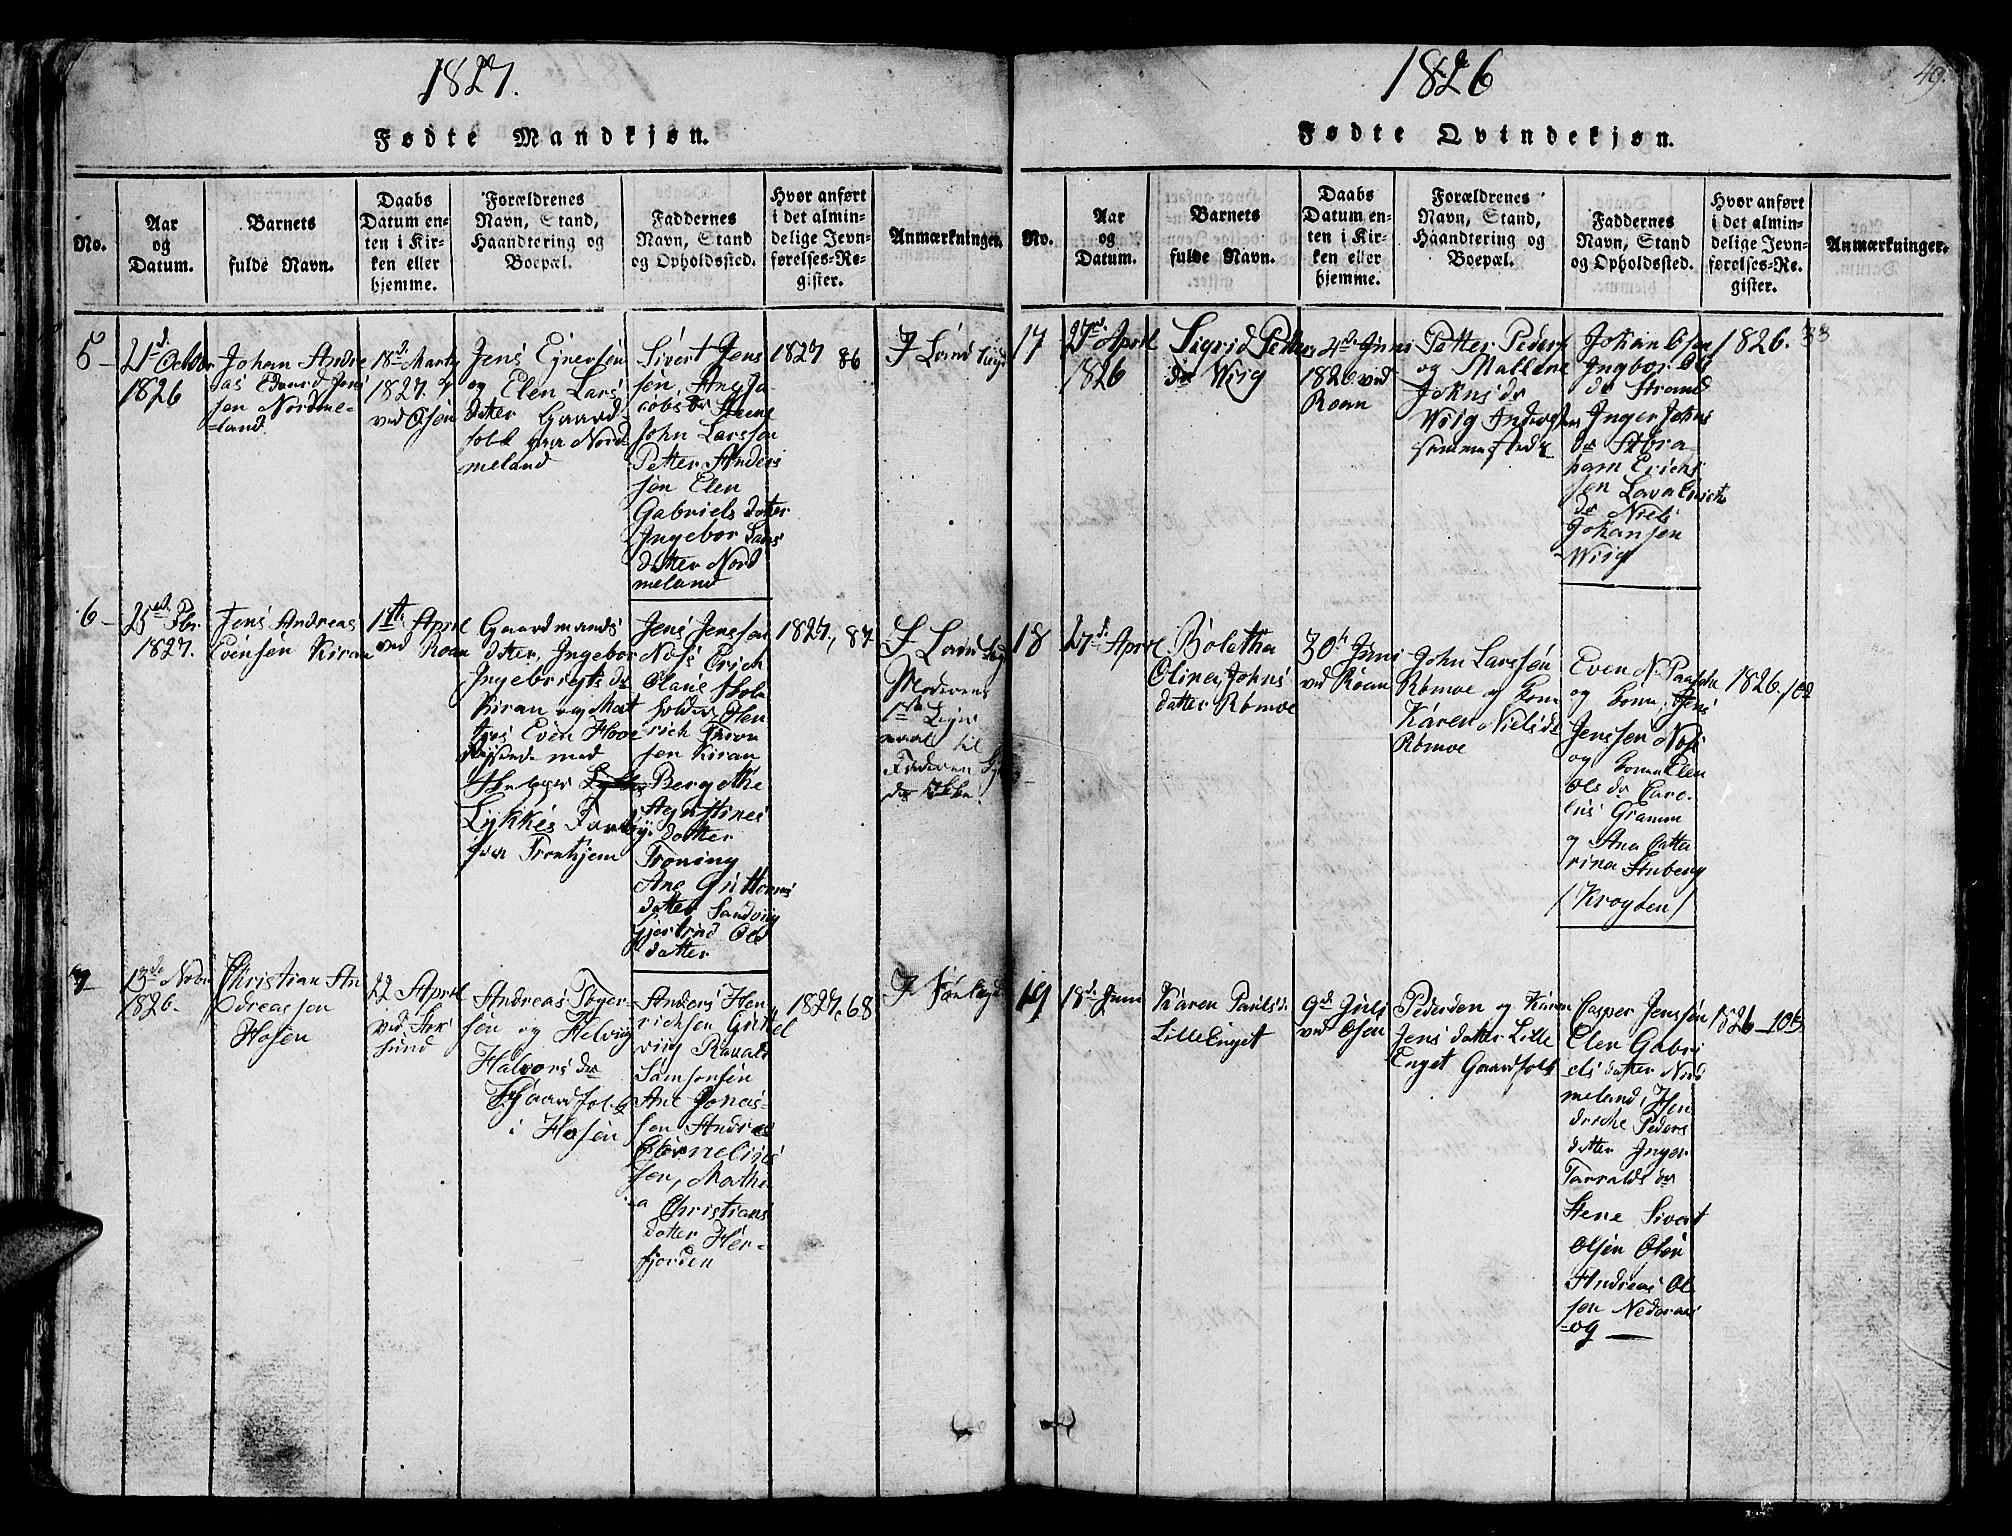 1827.
Fødte Mandkjøn.
No.
Aar
og
Datum.
Barnets
fulde Navn.
Daabs
Datum en-
ten i Kir-
ken eller
hjemme.
Forældrenes
Navn, Stand,
Haandtering og
Boepæl.
Faddernes
Navn, Stand
og Opholdssted.
Hvor anført
i det almin-
delige Jevn-
førelses-Re-
gister.
Anmærkninger.
5
21d Octobr
1826
Johan Andre
as Edvard Jens
sen Nordme-
land
18d Marty
1827.
ved Osen
Jens Ejnersen
og Elen Lars
datter Gaard
folk paa Nord
meland
Sivert Jens
sen, Ane Ja
cobs dr Steens
John Larssen
Petter Anders
sen Elen
Gabriels datter
Ingebor Lars
datter Nord
meland
1827 86
6
25de Fbr.
1827.
Jens Andreas
Evensen Kiran
1te April
ved Roan
Gaardmands
datter, Ingebor
Ingebrigts dr
Kiran og Mat
tros Even Hove
Reisende med
Lykkes
fra Tronhjem
Jens Jenssen
Noss Erich
Olans Skole
holder Hen
rich
sen Kiran
Bergethe
Agustines
datter
Troning
Ane Guttorms
datter Sandvig
Gjertrud Ols
datter
1827, 87
Moderens
1ste Leyer
maal til
Faderen
ikke.
7
13de Novbr
1826.
Christian An
dreassen
Hosen
22 April
ved Stok
sund
Andreas Tøger
sen og Helvig
Halvors dr
Gaardfolk
i Hosen
Anders Hen
richsen
ving Ravald
Samsonsen
Ane Jonas-
sen Andreas
Cornelius
sen, Mathe
a Christians
datter Her-
fjorden
1827, 68
1826
49.
Fødte Qvindekjøn.
No.
Aar
og
Datum.
Barnets
fulde Navn.
Daabs
Datum en-
ten i Kir-
ken eller
hjemme.
Forældrenes
Navn, Stand,
Haandtering og
Boepæl.
Faddernes
Navn, Stand
og Opholdssted.
Hvor anført
i det almin-
delige Jevn-
førelses-Re-
gister.
Anmærkninger.
17
27de April
1826
Sigrid Petters
dr Wiig
4de Juni
1826 ved
Roan
Petter Peders
og Mallene
Johns dr
Wiig Inderster
samme sted
Johan Olsen
Ingbor Ols
dr Strand
Inger Johns
dr Abra
ham Erichs
sen Lava Erichs
dr Niels
Johansen
Wiig
1826. 33
18
27d April
Bolatha
Olina Johns
datter Rømoe
30te Juni
ved Roan
John Larssen
Rømoe og Kone
Karen Niels dr
Rømoe
Even N. Paasche
og Kone, Jens
Jenssen Noss
og Konen Elen
Ols dr Care-
lius Gramm
og Ana Catte
rina Stuberg
/Krogden/
1826. 102
19
18d Juni
Karen Pauls dr
Lille Enget
9d Juli
ved Osen
Peder og Karen
Jens datter Lille
Enget Gaardfolk
Casper Jenssen
Elen Gabri
els datter Nord
meland, Hen
driche Peders
datter Inger
Tarralds dr
Stene Sivert
Olsen
Andreas Ol
sen Nedoraas
og
1826 - 105